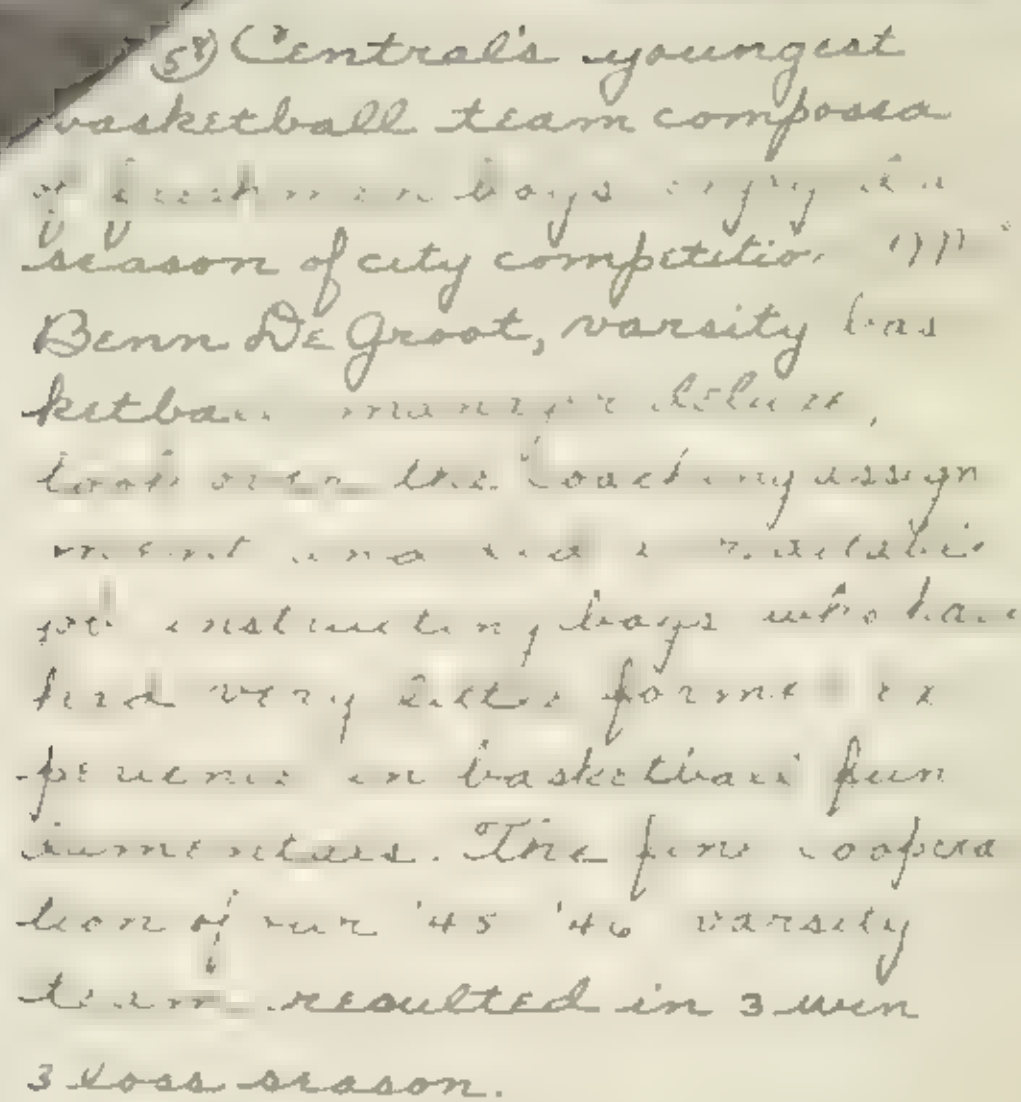 58 Central's youngest
basketball team composed
of freshmen boys enjoyed a
season of city competition
Benn De Groot, varsity bas
ketball manager deluxe,
took over the coaching assign
ment and did a
job instructing boys who have
had very little formal ex
perience in basketball fun
damentals. The fine coopera
tion of our '45 '46 varsity
team resulted in 3 win
3 loss season.